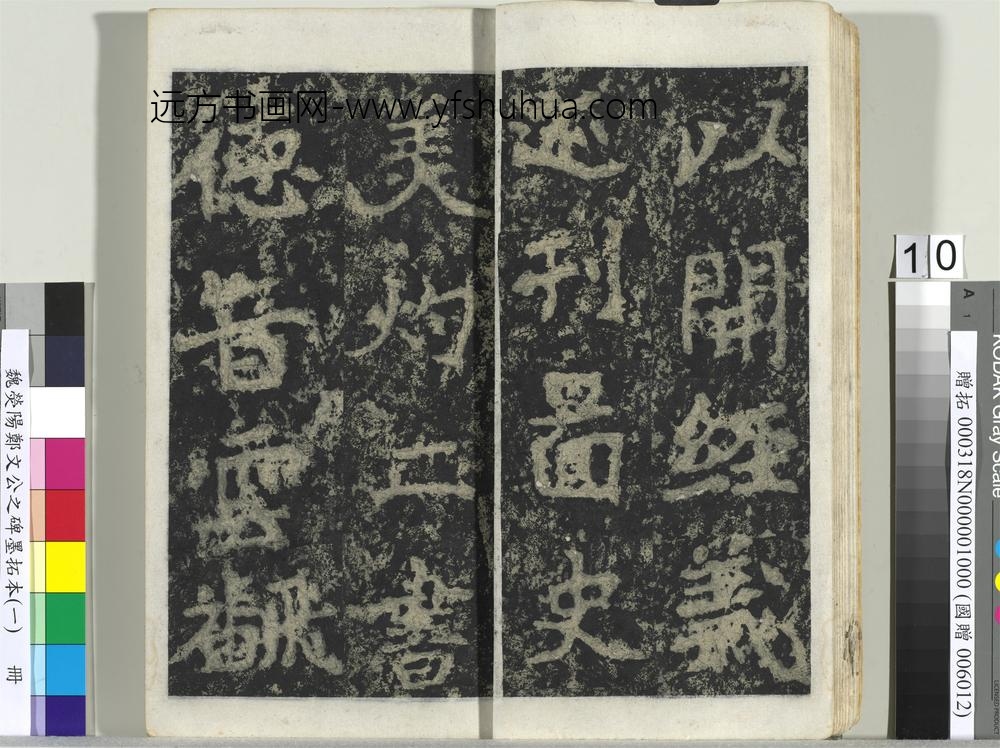 远方书画网-www.yfshuhua.com
以開經義
迹刊圖史
美灼二書
德音雲翻
10
A 1
KODAK Gray Scale
贈拓 000318N000001000 (國贈 006012)
魏熒陽鄭文公之碑墨拓本(一) 冊